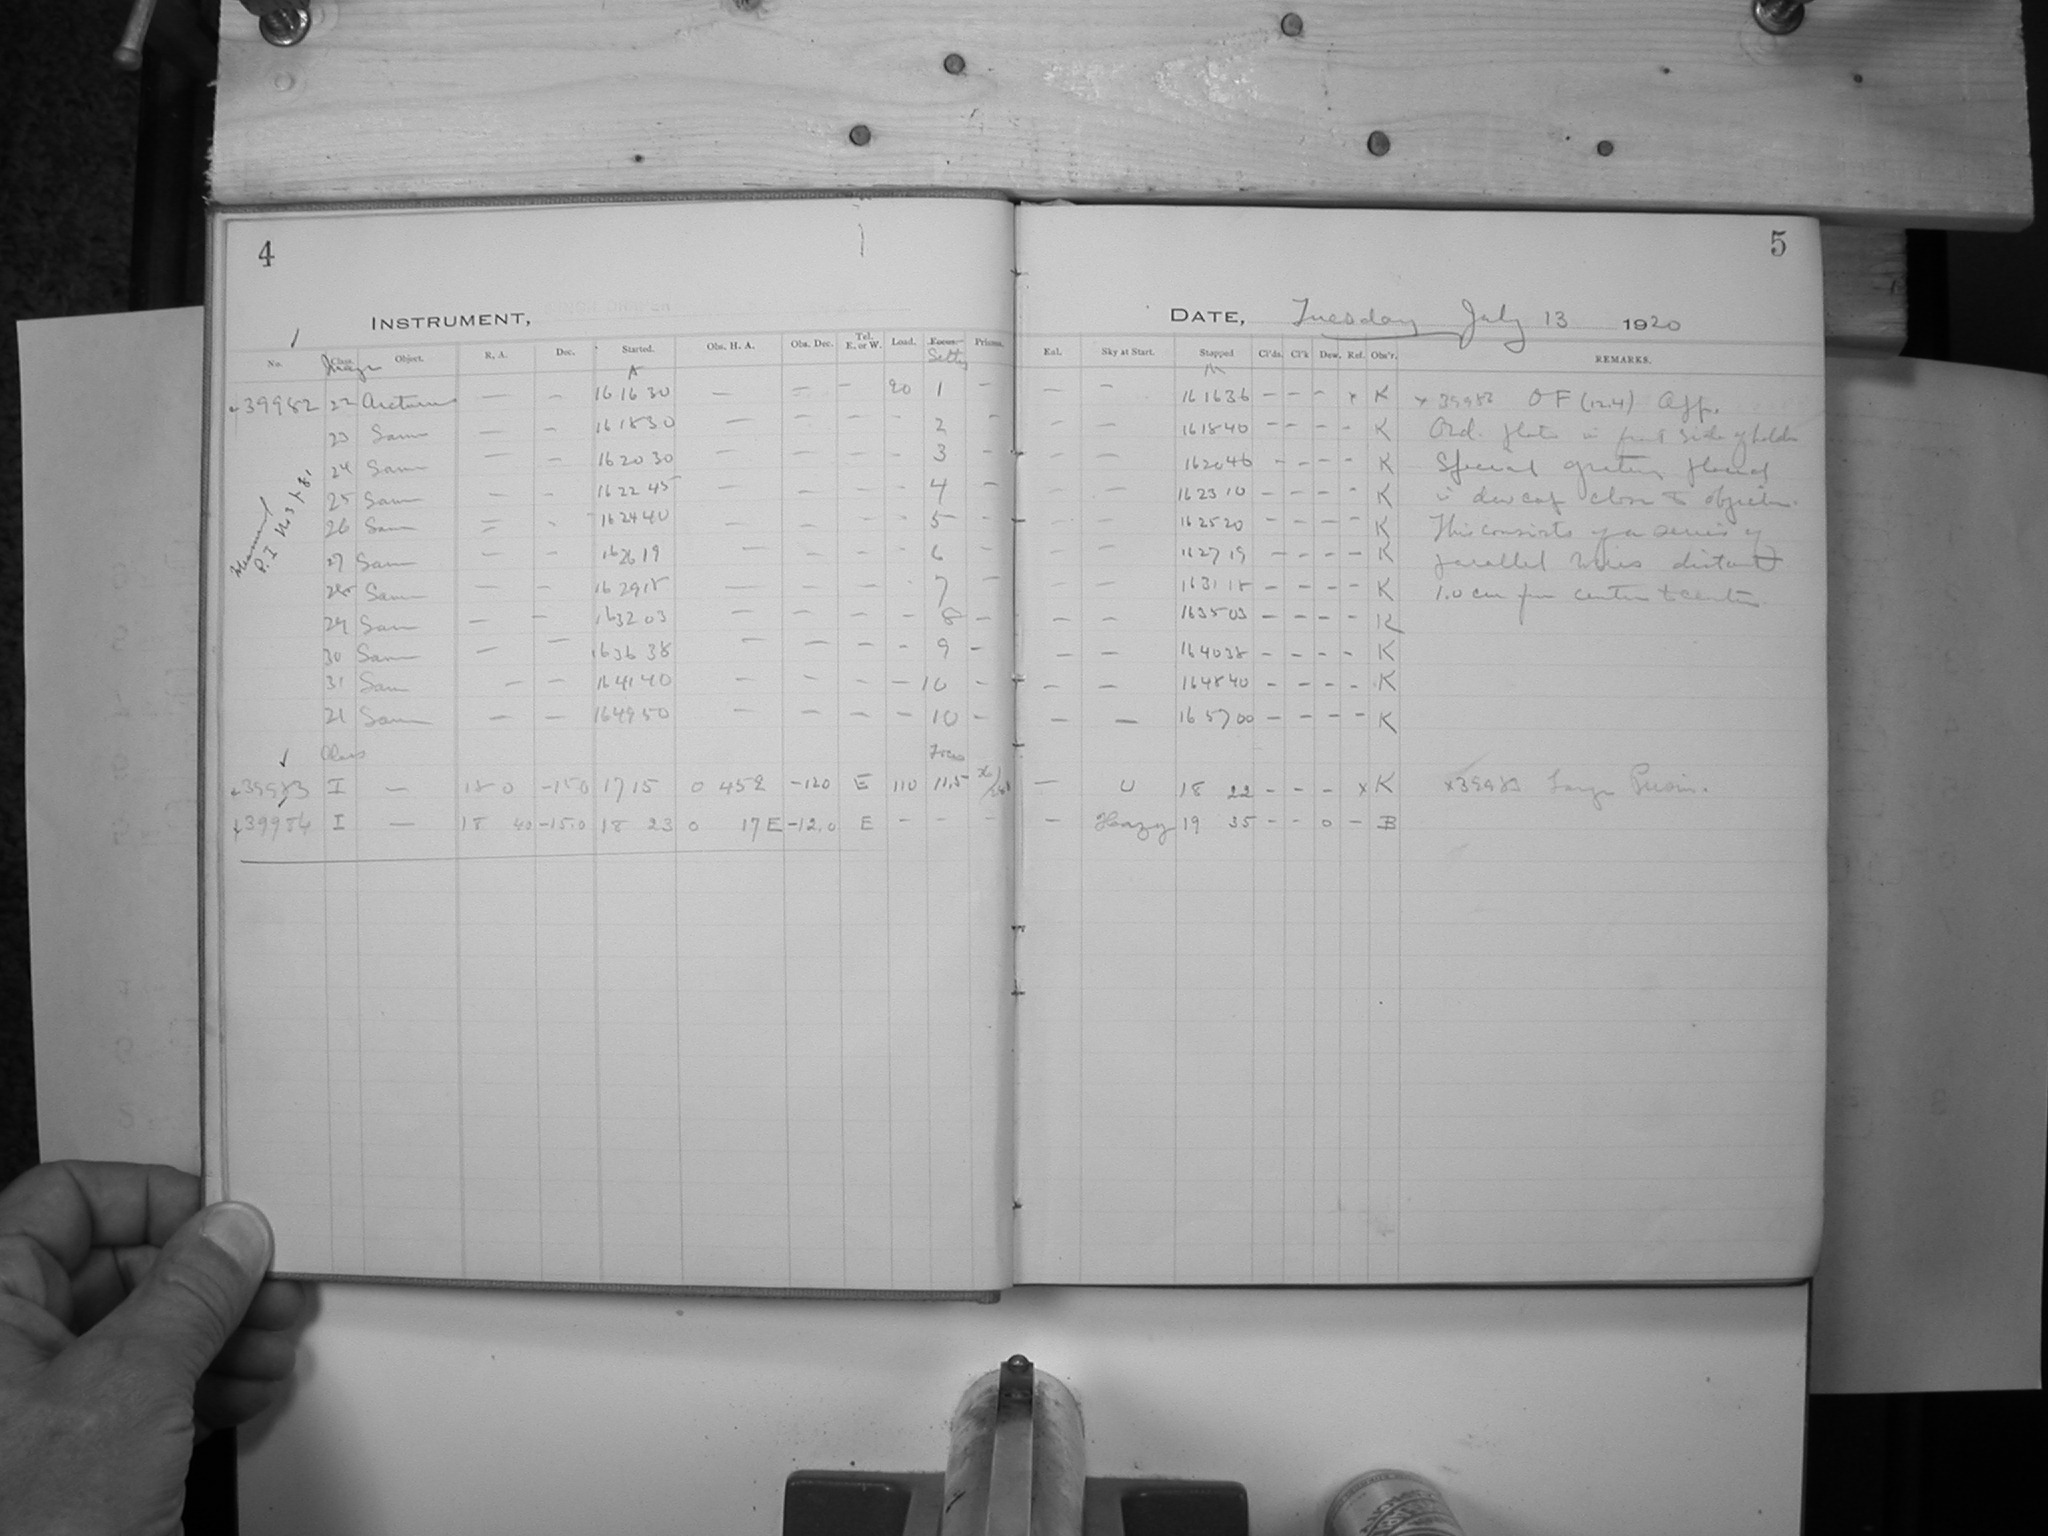 4
INSTRUMENT,
No. Class. Object. R. A. Dec. Started. Obs. H. A. Obs. Dec. Tel. E. or W. Load. Focus. Prisms.
Image Setting
39982 22 Arcturus — — 16 16 30 — — — 20 1 —
23 Same — — 16 18 30 — — — — 2 —
24 Same — — 16 20 30 — — — — 3 —
25 Same — — 16 22 45 — — — — 4 —
26 Same — — 16 24 40 — — — — 5 —
27 Same — — 16 26 19 — — — — 6 —
28 Same — — 16 29 18 — — — — 7 —
29 Same — — 16 32 03 — — — — 8 —
30 Same — — 16 36 38 — — — — 9 —
31 Same — — 16 41 40 — — — — 10 —
21 Same — — 16 49 50 — — — — 10 —
Class Focus
39983 I — 18 0 -15.0 17 15 0 45 E -12.0 E 110 11.5
39984 I — 18 40 -15.0 18 23 0 17 E -12.0 E — — —
5
DATE, Tuesday July 13 1920
Eal. Sky at Start. Stopped Cl'ds. Cl'k Dew. Ref. Obs'r. REMARKS.
— — 16 16 36 — — — x K
— — 16 18 40 — — — — K
— — 16 20 46 — — — — K
— — 16 23 10 — — — — K
— — 16 25 20 — — — — K
— — 16 27 19 — — — — K
— — 16 31 18 — — — — K
— — 16 35 03 — — — — K
— — 16 40 38 — — — — K
— — 16 48 40 — — — — K
— — 16 57 00 — — — — K
— U 18 22 — — — x K x39983 Large Prism.
— Hazy 19 35 — — 0 — B
OF (12.4) App.
Ord. plate in front side of holder
Special grating placed
in dewcap close to objective.
This consists of a series of
parallel wires distant
1.0 cm from center to center.